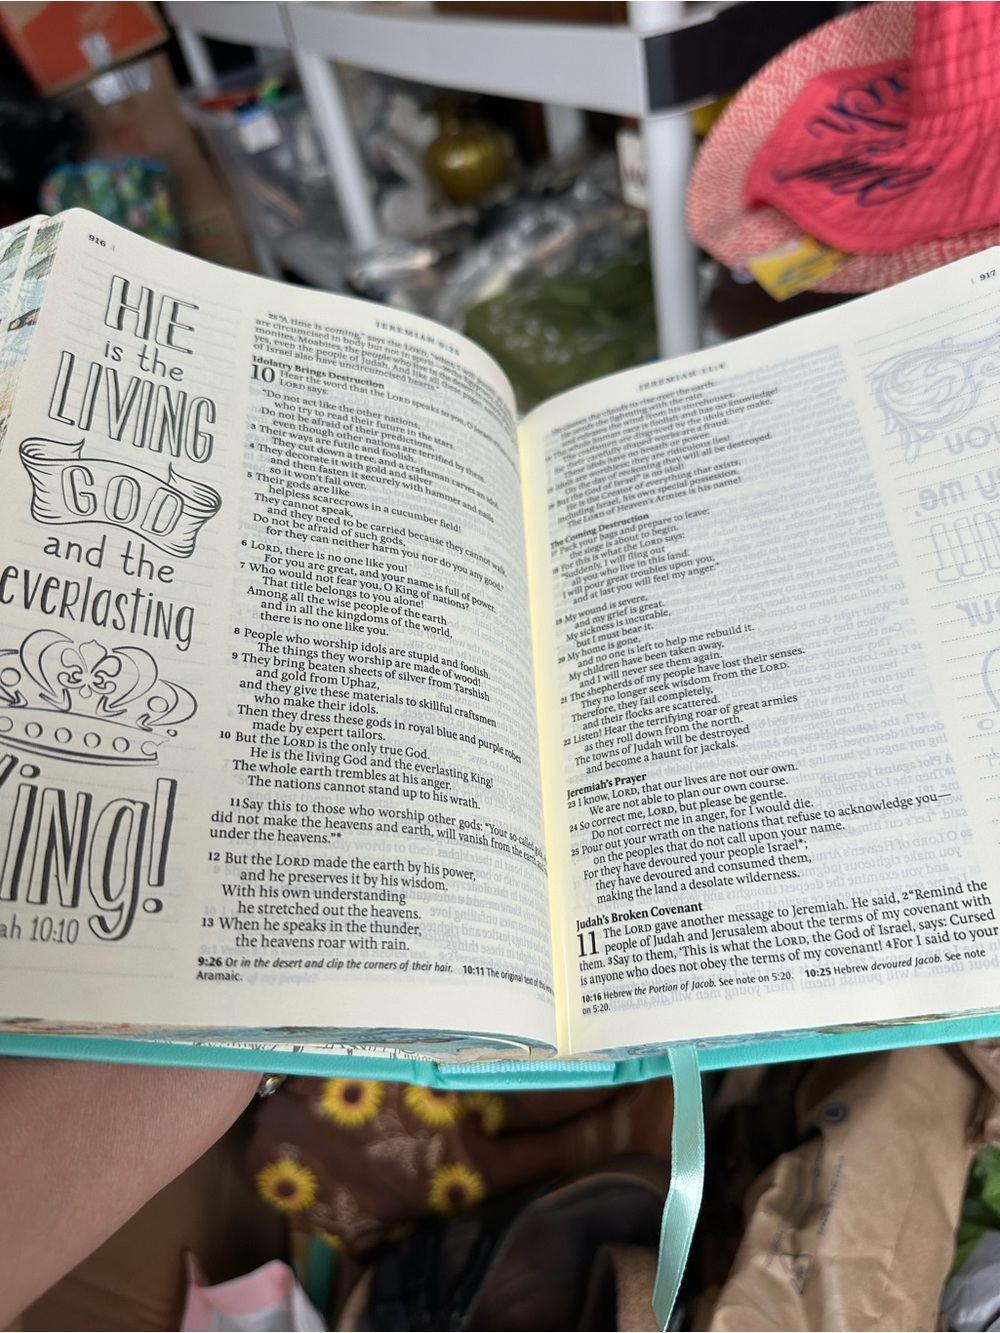 916
HE
is the
LIVING
GOD
and the
everlasting
King!
ah 10:10
JEREMIAH 9:25
25 "A time is coming," says the LORD, "when I will
are circumcised in body but not in spirit—
monites, Moabites, the people who live in the desert
yes, even the people of Judah. And like all these
of Israel also have uncircumcised hearts."
Idolatry Brings Destruction
10 Hear the word that the LORD speaks to you, O Israel!
LORD says:
"Do not act like the other nations,
who try to read their future in the stars.
Do not be afraid of their predictions,
even though other nations are terrified by them.
3 Their ways are futile and foolish.
They cut down a tree, and a craftsman carves an idol.
4 They decorate it with gold and silver
and then fasten it securely with hammer and nails
so it won't fall over.
5 Their gods are like
helpless scarecrows in a cucumber field!
They cannot speak,
and they need to be carried because they cannot walk.
Do not be afraid of such gods,
for they can neither harm you nor do you any good."
6 LORD, there is no one like you!
For you are great, and your name is full of power.
7 Who would not fear you, O King of nations?
That title belongs to you alone!
Among all the wise people of the earth
and in all the kingdoms of the world,
there is no one like you.
8 People who worship idols are stupid and foolish.
The things they worship are made of wood!
9 They bring beaten sheets of silver from Tarshish
and gold from Uphaz,
and they give these materials to skillful craftsmen
who make their idols.
Then they dress these gods in royal blue and purple robes
made by expert tailors.
10 But the LORD is the only true God.
He is the living God and the everlasting King!
The whole earth trembles at his anger.
The nations cannot stand up to his wrath.
11 Say this to those who worship other gods: "Your so-called gods, who
did not make the heavens and earth, will vanish from the earth and from
under the heavens."*
12 But the LORD made the earth by his power,
and he preserves it by his wisdom.
With his own understanding
he stretched out the heavens.
13 When he speaks in the thunder,
the heavens roar with rain.
9:26 Or in the desert and clip the corners of their hair. 10:11 The original text of this verse
Aramaic.
917
JEREMIAH 11:4
the clouds to rise over the earth.
the lightning with the rain
the wind from his storehouses.
human race is foolish and has no knowledge!
are disgraced by the idols they make,
carefully shaped works are a fraud.
These idols have no breath or power.
Idols are worthless; they are ridiculous lies!
On the day of reckoning they will all be destroyed.
But the God of Israel* is no idol!
He is the Creator of everything that exists,
including Israel, his own special possession.
The LORD of Heaven's Armies is his name!
The Coming Destruction
17 Pack your bags and prepare to leave;
the siege is about to begin.
18 For this is what the LORD says:
"Suddenly, I will fling out
all you who live in this land.
I will pour great troubles upon you,
and at last you will feel my anger."
19 My wound is severe,
and my grief is great.
My sickness is incurable,
but I must bear it.
20 My home is gone,
and no one is left to help me rebuild it.
My children have been taken away,
and I will never see them again.
21 The shepherds of my people have lost their senses.
They no longer seek wisdom from the LORD.
Therefore, they fail completely,
and their flocks are scattered.
22 Listen! Hear the terrifying roar of great armies
as they roll down from the north.
The towns of Judah will be destroyed
and become a haunt for jackals.
Jeremiah's Prayer
23 I know, LORD, that our lives are not our own.
We are not able to plan our own course.
24 So correct me, LORD, but please be gentle.
Do not correct me in anger, for I would die.
25 Pour out your wrath on the nations that refuse to acknowledge you—
on the peoples that do not call upon your name.
For they have devoured your people Israel*;
they have devoured and consumed them,
making the land a desolate wilderness.
Judah's Broken Covenant
11 The LORD gave another message to Jeremiah. He said, 2 "Remind the
people of Judah and Jerusalem about the terms of my covenant with
them. 3 Say to them, 'This is what the LORD, the God of Israel, says: Cursed
is anyone who does not obey the terms of my covenant! 4 For I said to your
10:16 Hebrew the Portion of Jacob. See note on 5:20. 10:25 Hebrew devoured Jacob. See note
on 5:20.